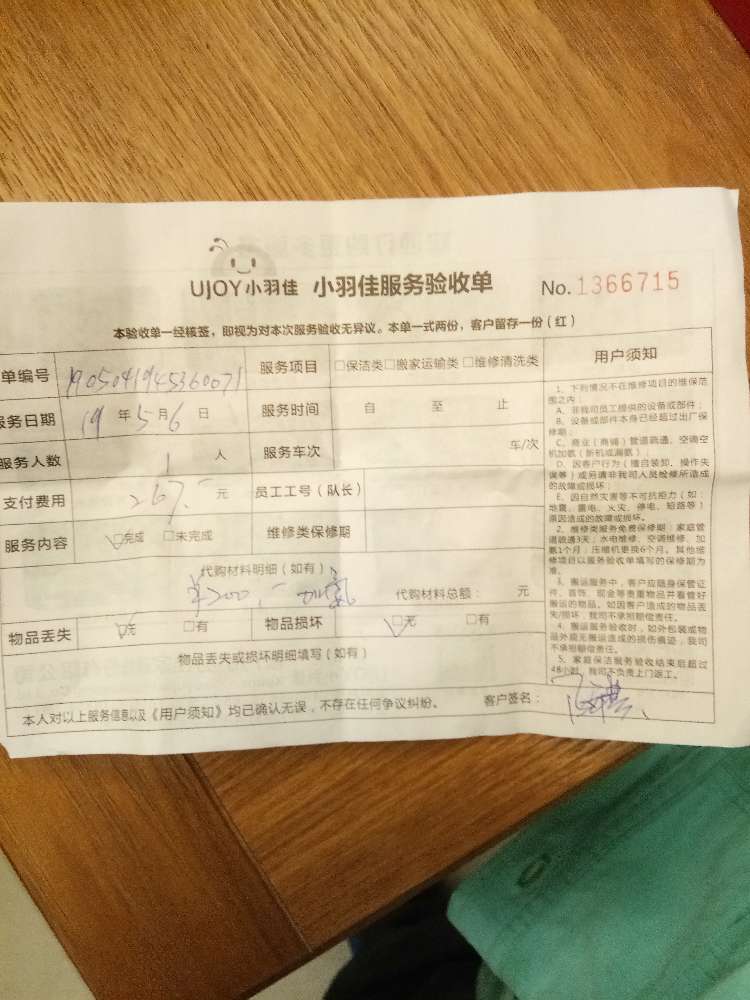 UJOY小羽佳 小羽佳服务验收单 No. 1366715
本验收单一经核签，即视为对本次服务验收无异议。本单一式两份，客户留存一份（红）
单编号 1905041945360071 服务项目 □保洁类□搬家运输类□维修清洗类
服务日期 19 年 5 月 6 日 服务时间 自 至 止
服务人数 1 人 服务车次 车/次
支付费用 267.- 元 员工工号（队长）
服务内容 □完成 □未完成 维修类保修期
代购材料明细（如有）
¥200.- 加氟 代购材料总额： 元
物品丢失 □无 □有 物品损坏 □无 □有
物品丢失或损坏明细填写（如有）
本人对以上服务信息以及《用户须知》均已确认无误，不存在任何争议纠纷。 客户签名：
用户须知
1、下列情况不在维修项目的维保范
围之内：
A、非我司员工提供的设备或部件；
B、设备或部件本身已经超过出厂保
修期；
C、商业（商铺）管道疏通、空调空
机加氨（新机或漏氨）；
D、因客户行为（擅自装卸、操作失
误等）或另请非我司人员检修所造成
的故障或损坏；
E、因自然灾害等不可抗拒力（如：
地震、雷电、火灾、停电、短路等）
原因造成的故障或损坏。
2、维修类服务免费保修期：家庭管
道疏通3天，水电维修、空调维修、加
氨1个月；压缩机更换6个月。其他维
修项目以服务验收单填写的保修期为
准。
3、搬运服务中，客户应随身保管证
件、首饰、现金等贵重物品并看管好
搬运的物品。如因客户造成的物品丢
失/损坏，我司不承担赔偿责任。
4、搬运服务验收时，如外包装或物
品外观无搬运造成的损伤痕迹，我司
不承担赔偿责任。
5、家庭保洁服务验收结束后超过
48小时，我司不负责上门返工。